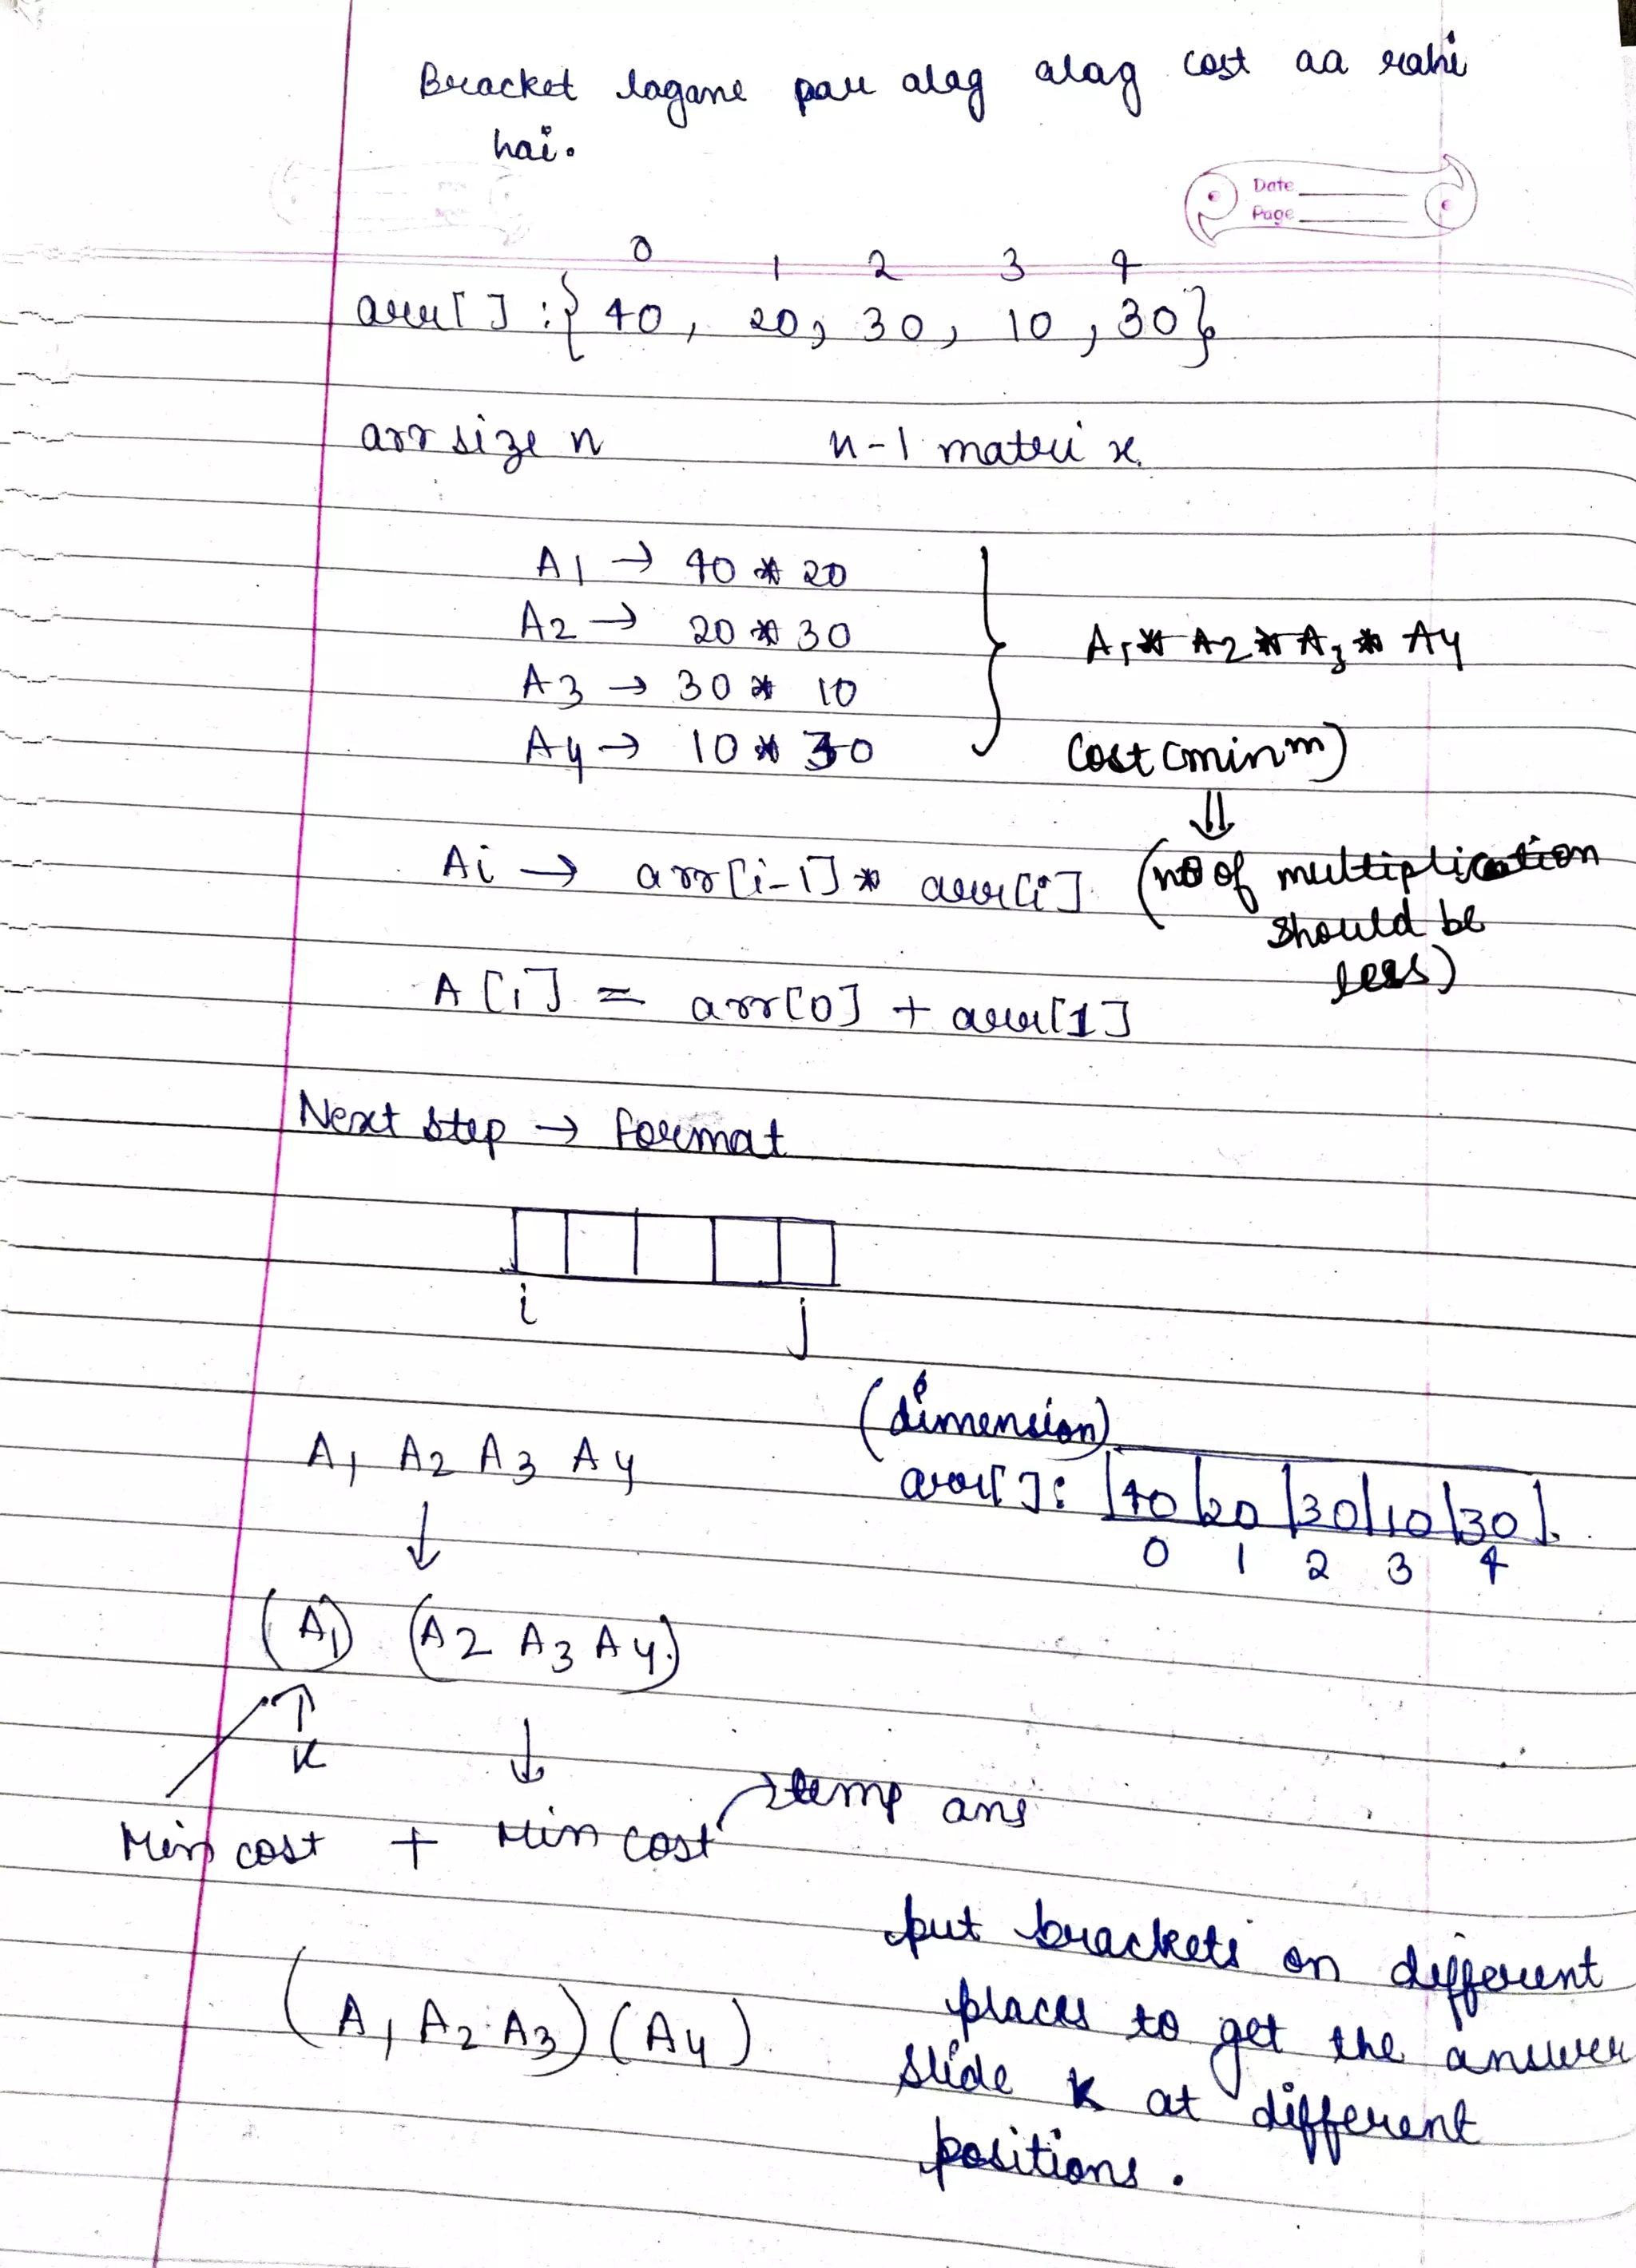 Bracket lagane par alag alag cost aa rahi
hai.
Date
Page
0 1 2 3 4
arr[ ] : { 40, 20, 30, 10, 30}
arr size n n-1 matrix.
A1 → 40 * 20
A2 → 20 * 30
A3 → 30 * 10
A4 → 10 * 30
A1 * A2 * A3 * A4
Cost (minm)
⇓
(no of multiplication
should be
less)
Ai → arr[i-1] * arr[i]
A[i] = arr[0] + arr[1]
Next step → format
i j
A1 A2 A3 A4
↓
(dimension)
arr[ ]: |40|20|30|10|30|.
0 1 2 3 4
(A1) (A2 A3 A4)
↑
K ↓
Min cost + Min cost → temp ans
(A1 A2 A3) (A4)
put brackets on different
places to get the answer
slide K at different
positions.